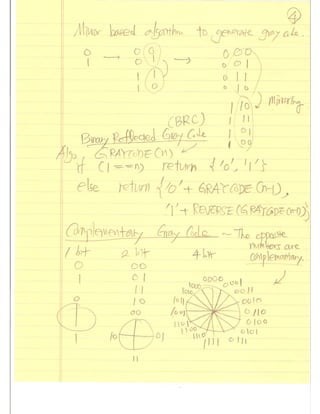 ④
Mirror based algorithm to generate gray code.
0 00 000
1 01 001
11 011
10 010
110 Mirroring
111
101
100
(BRC)
Binary Reflected Gray Code
Algo GRAYCODE(n)
if (1==n) return {'0', '1'}
else return {'0' + GRAYCODE(n-1),
'1' + REVERSE(GRAYCODE(n-1))}
Complementary Gray Code ~ The opposite
numbers are
complementary.
1 bit 2 bit 4 bit
0 00
1 01
11
10
0 00
1
10 01
11
0000
0001
0011
0010
0110
0100
0101
0111
1111
1110
1100
1101